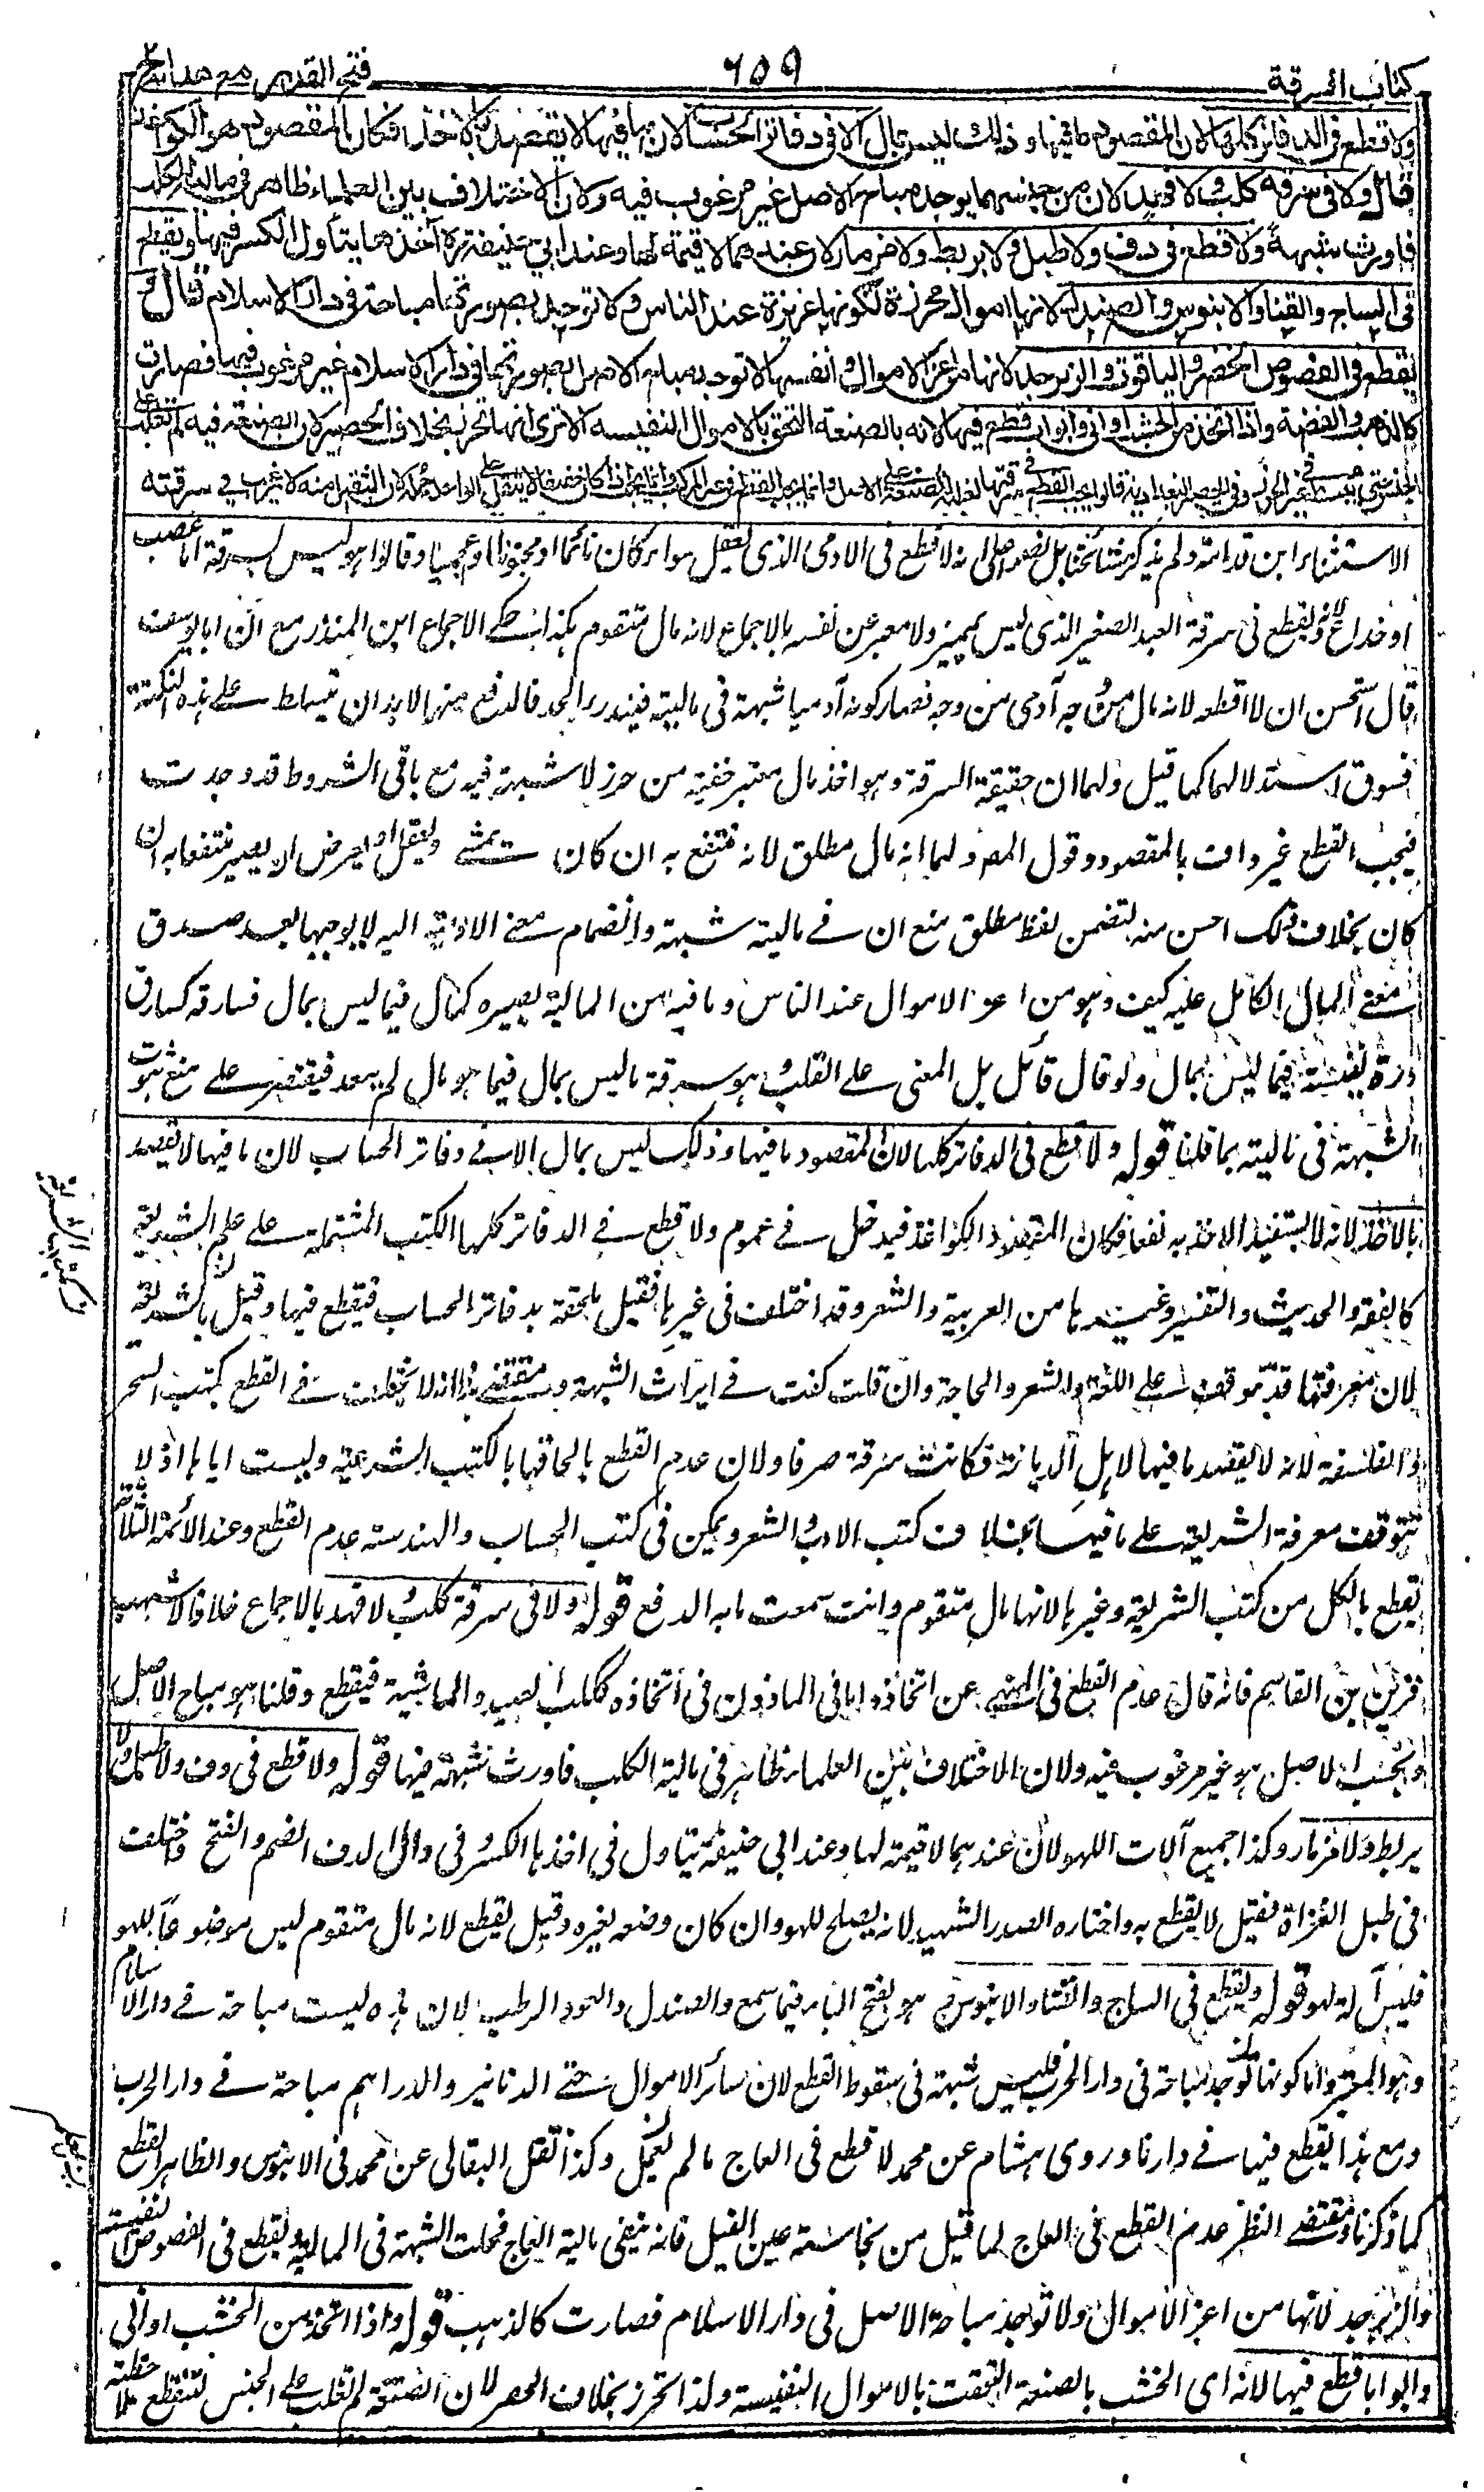 كتاب السرقة
٦٥٩
فتح القدير مع هدايه ج ٢
ولا قطع فى الدفاتر كلها لان المقصود ما فيها وذلك ليس بمال الا فى دفاتر الحساب لان ما فيها لا يقصد بالاخذ فكان المقصود هو الكواغذ
قال ولا فى سرقة كلب ولا فهد لان من جنسهما يوجد مباح الاصل غير مرغوب فيه ولان الاختلاف بين العلماء ظاهر فى مالية الكلب
فاورث شبهة ولا قطع فى دف ولا طبل ولا بربط ولا مزمار لان عندهما لا قيمة لها وعند ابي حنيفة رح آخذها يتأول الكسر فيها ويقطع
فى الساج والقنا والابنوس والصندل لانها اموال محرزة لكونها عزيزة عند الناس ولا توجد بصورتها مباحة فى دار الاسلام قال و
يقطع فى الفصوص الخضر والياقوت والزبرجد لانها من اعز الاموال وانفسها لا توجد مباح الاصل بصورتها فى دار الاسلام غير مرغوب فيها فصارت
كالذهب والفضة واذا اتخذ من الخشب اوانى وابواب قطع فيها لانه بالصنعة التحق بالاموال النفيسة الا ترى انها تحرز بخلاف الحصير لان الصنعة فيه لم تغلب على
الجنس حتى يبسط فى غير الحرز وفى الحصر البغدادية قالوا يجب القطع فى سرقتها لغلبة الصنعة على الاصل وانما يجب القطع فى غير المركب وانما يجب اذا كان خفيفا لا يثقل على الواحد حمله لان الثقيل منه لا يرغب فى سرقته
الاستثناء ابن قدامة ولم يذكر مشائخنا بل نصوا على انه لا قطع فى الادمى الذى يعقل سواء كان نائما او مجنونا او عجميا وقالوا هو ليس بسرقة اما غصب
او خداع لانه ويقطع فى سرقة العبد الصغير الذى ليس بمميز ولا معبر عن نفسه بالاجماع لانه مال متقوم هكذا حكى الاجماع ابن المنذر مع ان ابا يوسف
قال استحسن ان لا اقطعه لانه مال من وجه آدمى من وجه فصار كونه آدميا شبهة فى ماليته فيندرء الحد فالدفع منهما لابد ان يتسلط على هذه النكتة
فسوق استدلالهما كما قيل ولهما ان حقيقة السرقة وهو اخذ مال معتبر خفية من حرز لا شبهة فيه مع باقى الشروط قد وجدت
فيجب القطع غير واف بالمقصود وقول المص ولهما انه مال مطلق لانه منتفع به ان كان يمشى ويعقل او بعرض ان يصير منتفعا به ان
كان بخلاف ذلك احسن منه لتضمن لفظ مطلق منع ان فى ماليته شبهة وانضمام معنى الادمية اليه لا يوجبها بعد صدق
معنى المال الكامل عليه كيف وهو من اعز الاموال عند الناس وما فيه من المالية يصيره كمال فيما ليس بمال فسارقه كسارق
درة نفيسة فيما ليس بمال ولو قال قائل بل المعنى على القلب هو سرقة ما ليس بمال فيما هو مال لم يبعد فيقتصر على منع ثبوت
الشبهة فى ماليته بما قلنا قوله ولا قطع فى الدفاتر كلها لان المقصود ما فيها وذلك ليس بمال الا فى دفاتر الحساب لان ما فيها لا يقصد
بالاخذ لانه لا يستفيد الاخذ به نفعا فكان المقصود الكواغذ فيدخل فى عموم ولا قطع فى الدفاتر كلها الكتب المشتملة على علم الشريعة
كالفقه والحديث والتفسير وغيرها من العربية والشعر وقد اختلف فى غيرها فقيل ملحقة بدفاتر الحساب فيقطع فيها وقيل بالشريعة
لان معرفتها قد تتوقف على اللغة والشعر والحاجة وان قلت كفت فى ايراث الشبهة ومقتضى هذا انه لا يختلف فى القطع بكتب السحر
والفلسفة لانه لا يقصد ما فيها لاهل الديانة فكانت سرقة صرفا ولان عدم القطع بالحاقها بالكتب الشرعية وليست اياها اذ لا
تتوقف معرفة الشريعة على ما فيها بخلاف كتب الادب والشعر ويمكن فى كتب الحساب والهندسة عدم القطع وعند الأئمة الثلاثة
يقطع بالكل من كتب الشريعة وغيرها لانها مال متقوم وانت سمعت ما به الدفع قوله ولا فى سرقة كلب ولا فهد بالاجماع خلافا لاشهب
قرين بن القاسم فانه قال عدم القطع فى المنهى عن اتخاذه اما فى الماذون فى اتخاذه ككلب الصيد والماشية فيقطع وقلنا هو مباح الاصل
وبحسب الاصل هو غير مرغوب فيه ولان الاختلاف بين العلماء ظاهر فى مالية الكلب فاورث شبهة فيها قوله ولا قطع فى دف ولا طبل ولا
بربط ولا مزمار وكذا جميع آلات اللهو لان عندهما لا قيمة لها وعند ابى حنيفة يتاول فى اخذها الكسر فى دال الدف الضم والفتح واختلف
فى طبل الغزاة فقيل لا يقطع به واختاره الصدر الشهيد لانه يصلح للهو وان كان وضعه لغيره وقيل يقطع لانه مال متقوم ليس موضوعا للهو
فليس آلة لهو قوله ويقطع فى الساج والقنا والابنوس هو بفتح الباء فيما سمع والصندل والعود الرطب لان هذه ليست مباحة فى دار الاسلام
وهو المعتبر واما كونها توجد مباحة فى دار الحرب فليس شبهة فى سقوط القطع لان سائر الاموال حتى الدنانير والدراهم مباحة فى دار الحرب
ومع هذا يقطع فيها فى دارنا وروى هشام عن محمد لا قطع فى العاج ما لم يعمل وكذا نقل البقالى عن محمد فى الابنوس والظاهر القطع
كما ذكرنا ومقتضى النظر عدم القطع فى العاج لما قيل من نجاسة عين الفيل فانه ينفى مالية العاج فحلت الشبهة فى المالية ويقطع فى الفصوص النفيسة
والزبرجد لانها من اعز الاموال ولا توجد مباحة الاصل فى دار الاسلام فصارت كالذهب قوله واذا اتخذ من الخشب اوانى
وابوابا قطع فيها لانه اى الخشب بالصنعة التحقت بالاموال النفيسة ولذا تحرز بخلاف الحصر لان الصنعة لم تغلب على الجنس لتنقطع ملاحظته